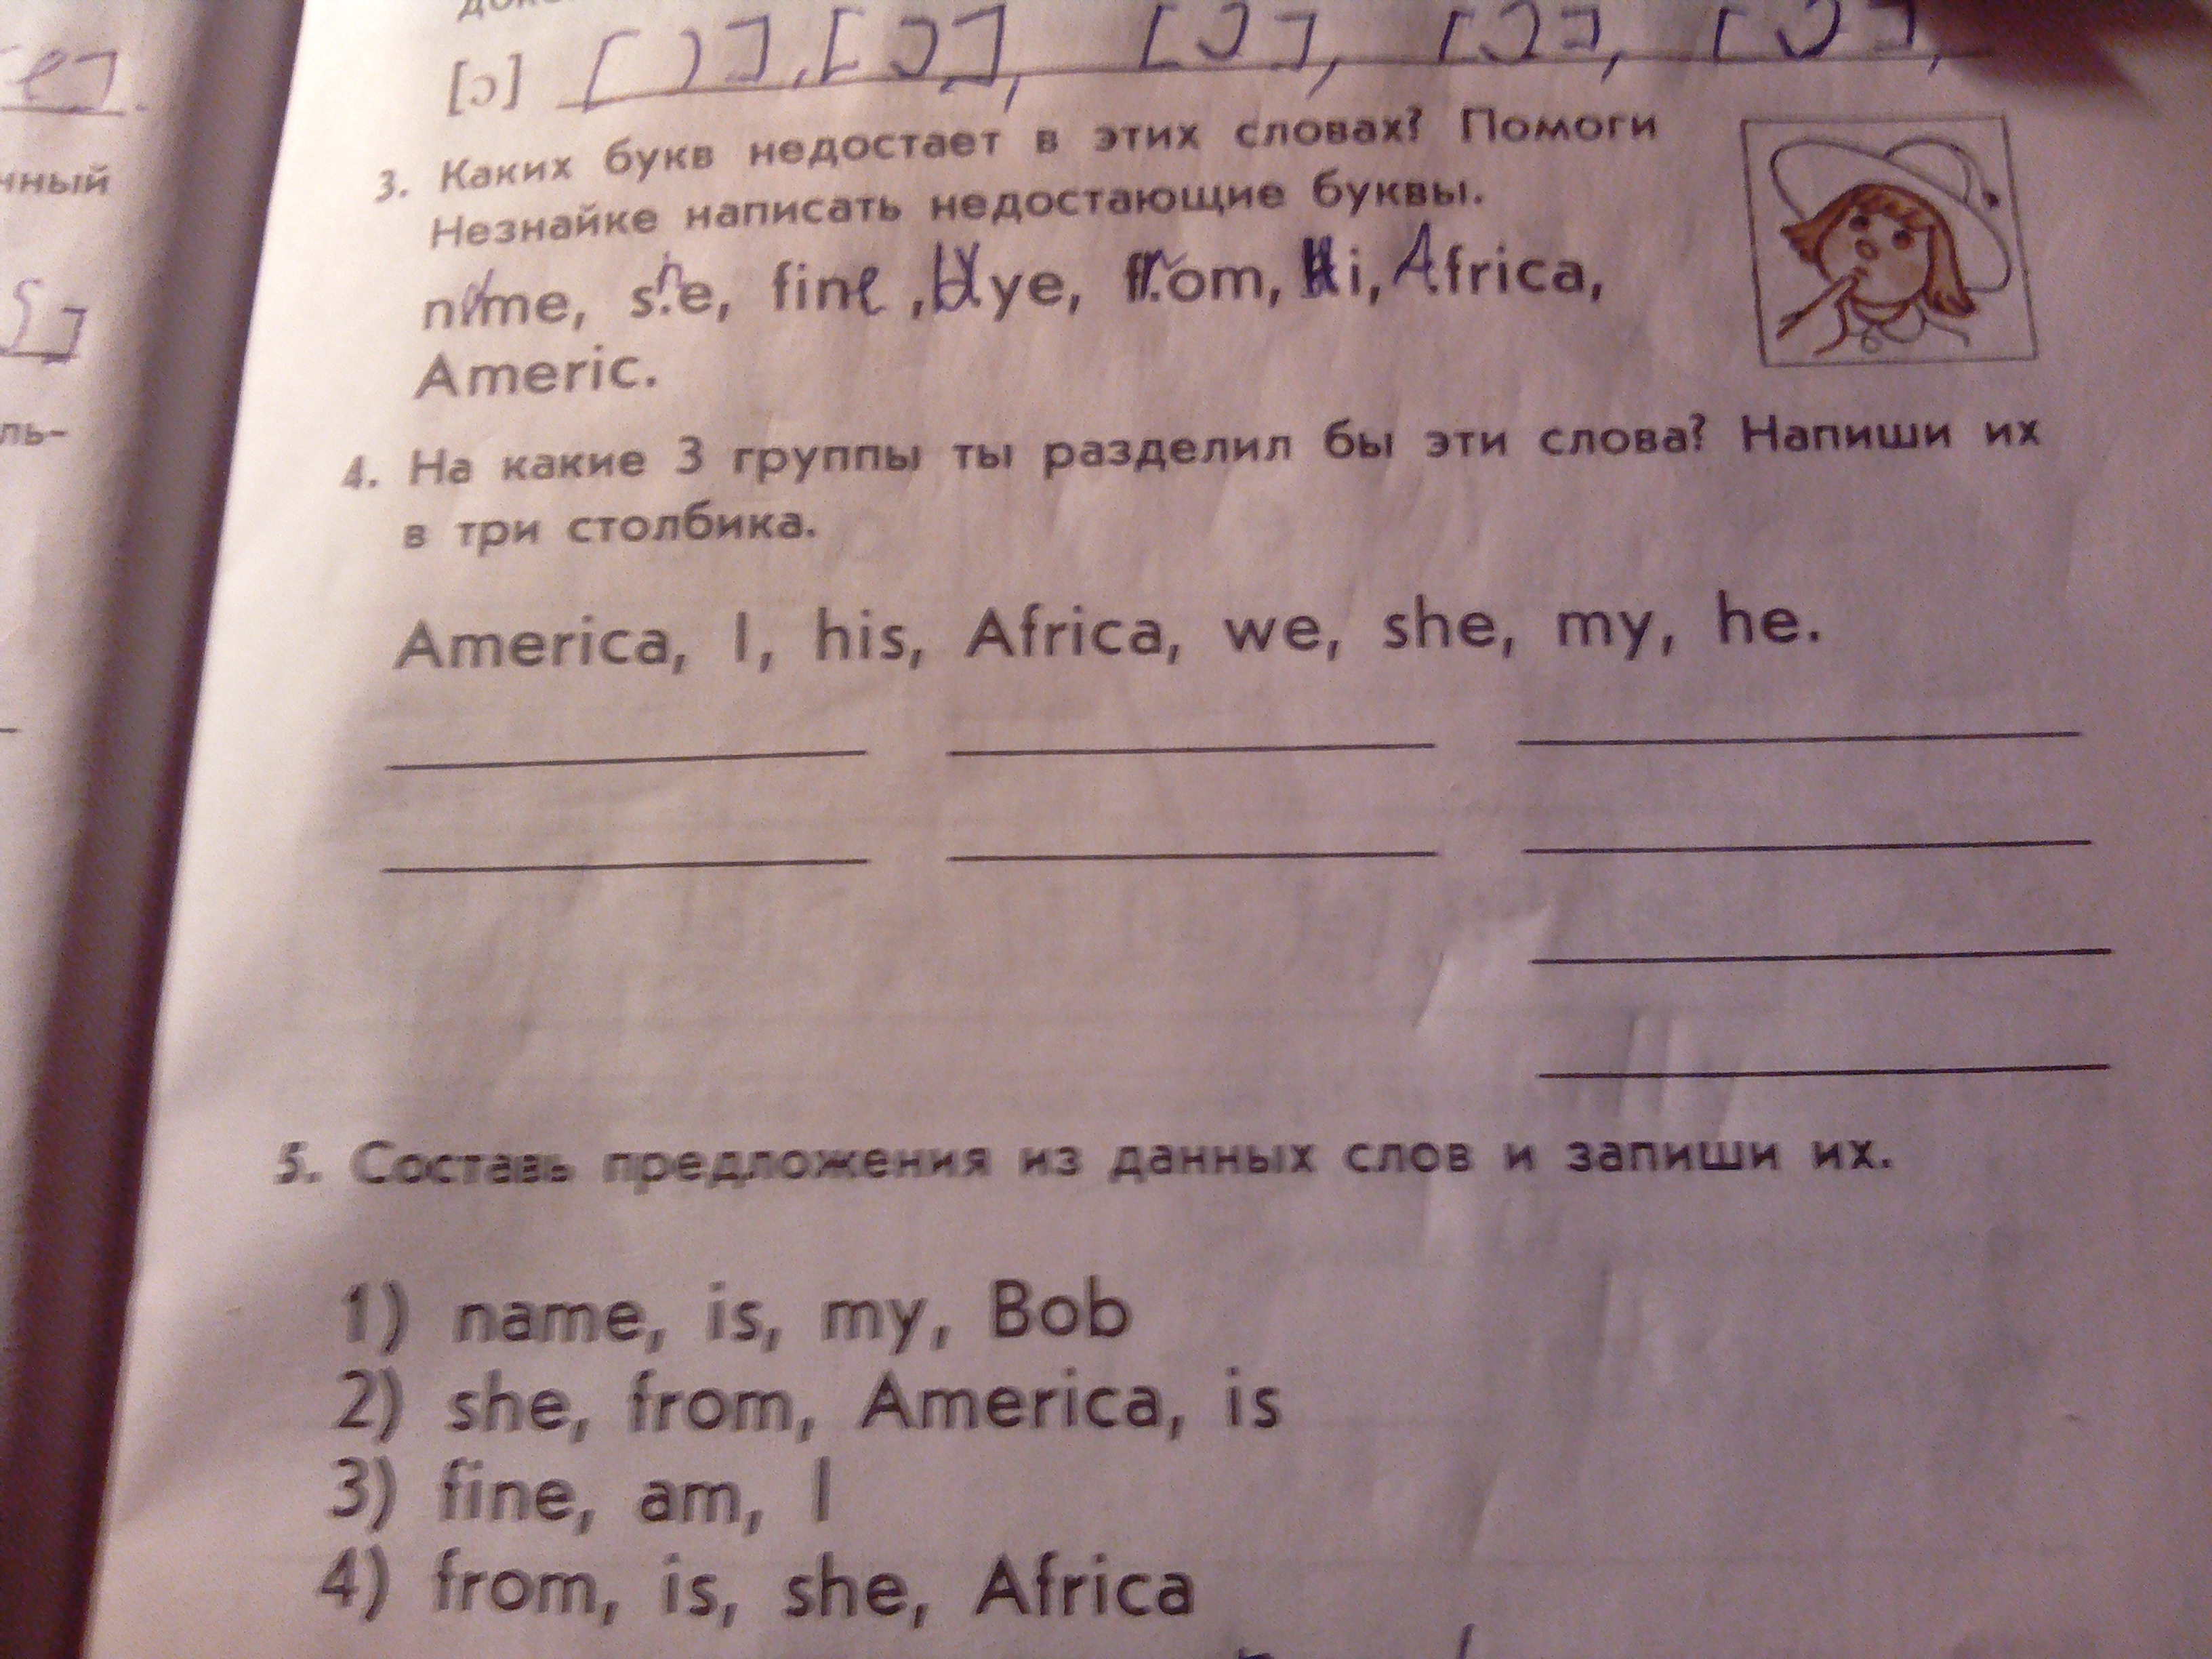 [ɔ] [ɔ], [ɔ], [ɔ], [ɔ], [ɔ],
3. Каких букв недостает в этих словах? Помоги
Незнайке написать недостающие буквы.
name, she, fine, bye, from, Hi, Africa,
Americ.
4. На какие 3 группы ты разделил бы эти слова? Напиши их
в три столбика.
America, I, his, Africa, we, she, my, he.
5. Составь предложения из данных слов и запиши их.
1) name, is, my, Bob
2) she, from, America, is
3) fine, am, I
4) from, is, she, Africa